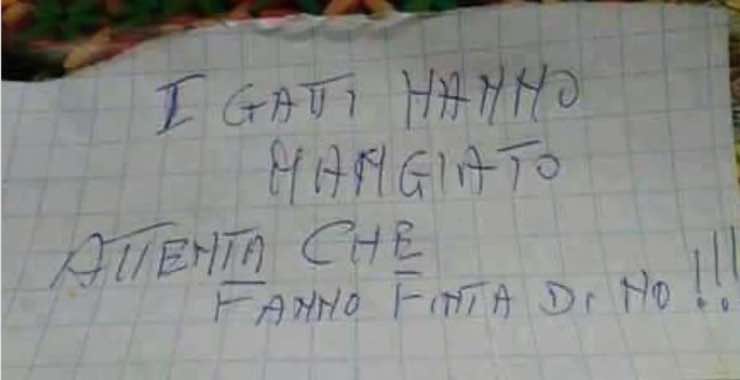 I GATTI HANNO
MANGIATO
ATTENTA CHE
FANNO FINTA DI NO!!!